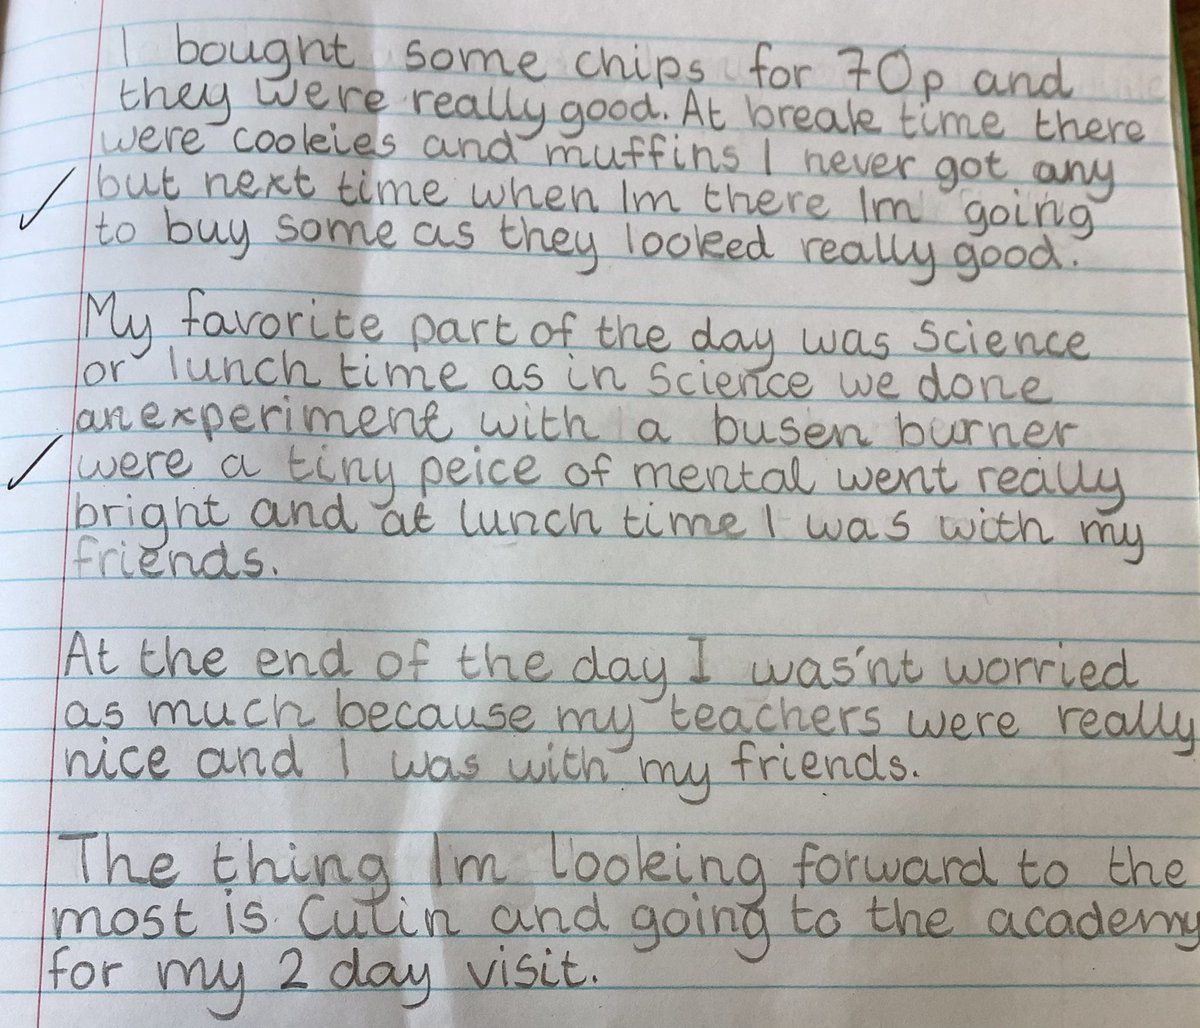 I bought some chips for 70p and
they were really good. At break time there
were cookies and muffins I never got any
but next time when Im there Im going
to buy some as they looked really good.
My favorite part of the day was Science
or lunch time as in Science we done
an experiment with a busen burner
were a tiny peice of mental went really
bright and at lunch time I was with my
friends.
At the end of the day I was'nt worried
as much because my teachers were really
nice and I was with my friends.
The thing Im looking forward to the
most is Culin and going to the academy
for my 2 day visit.